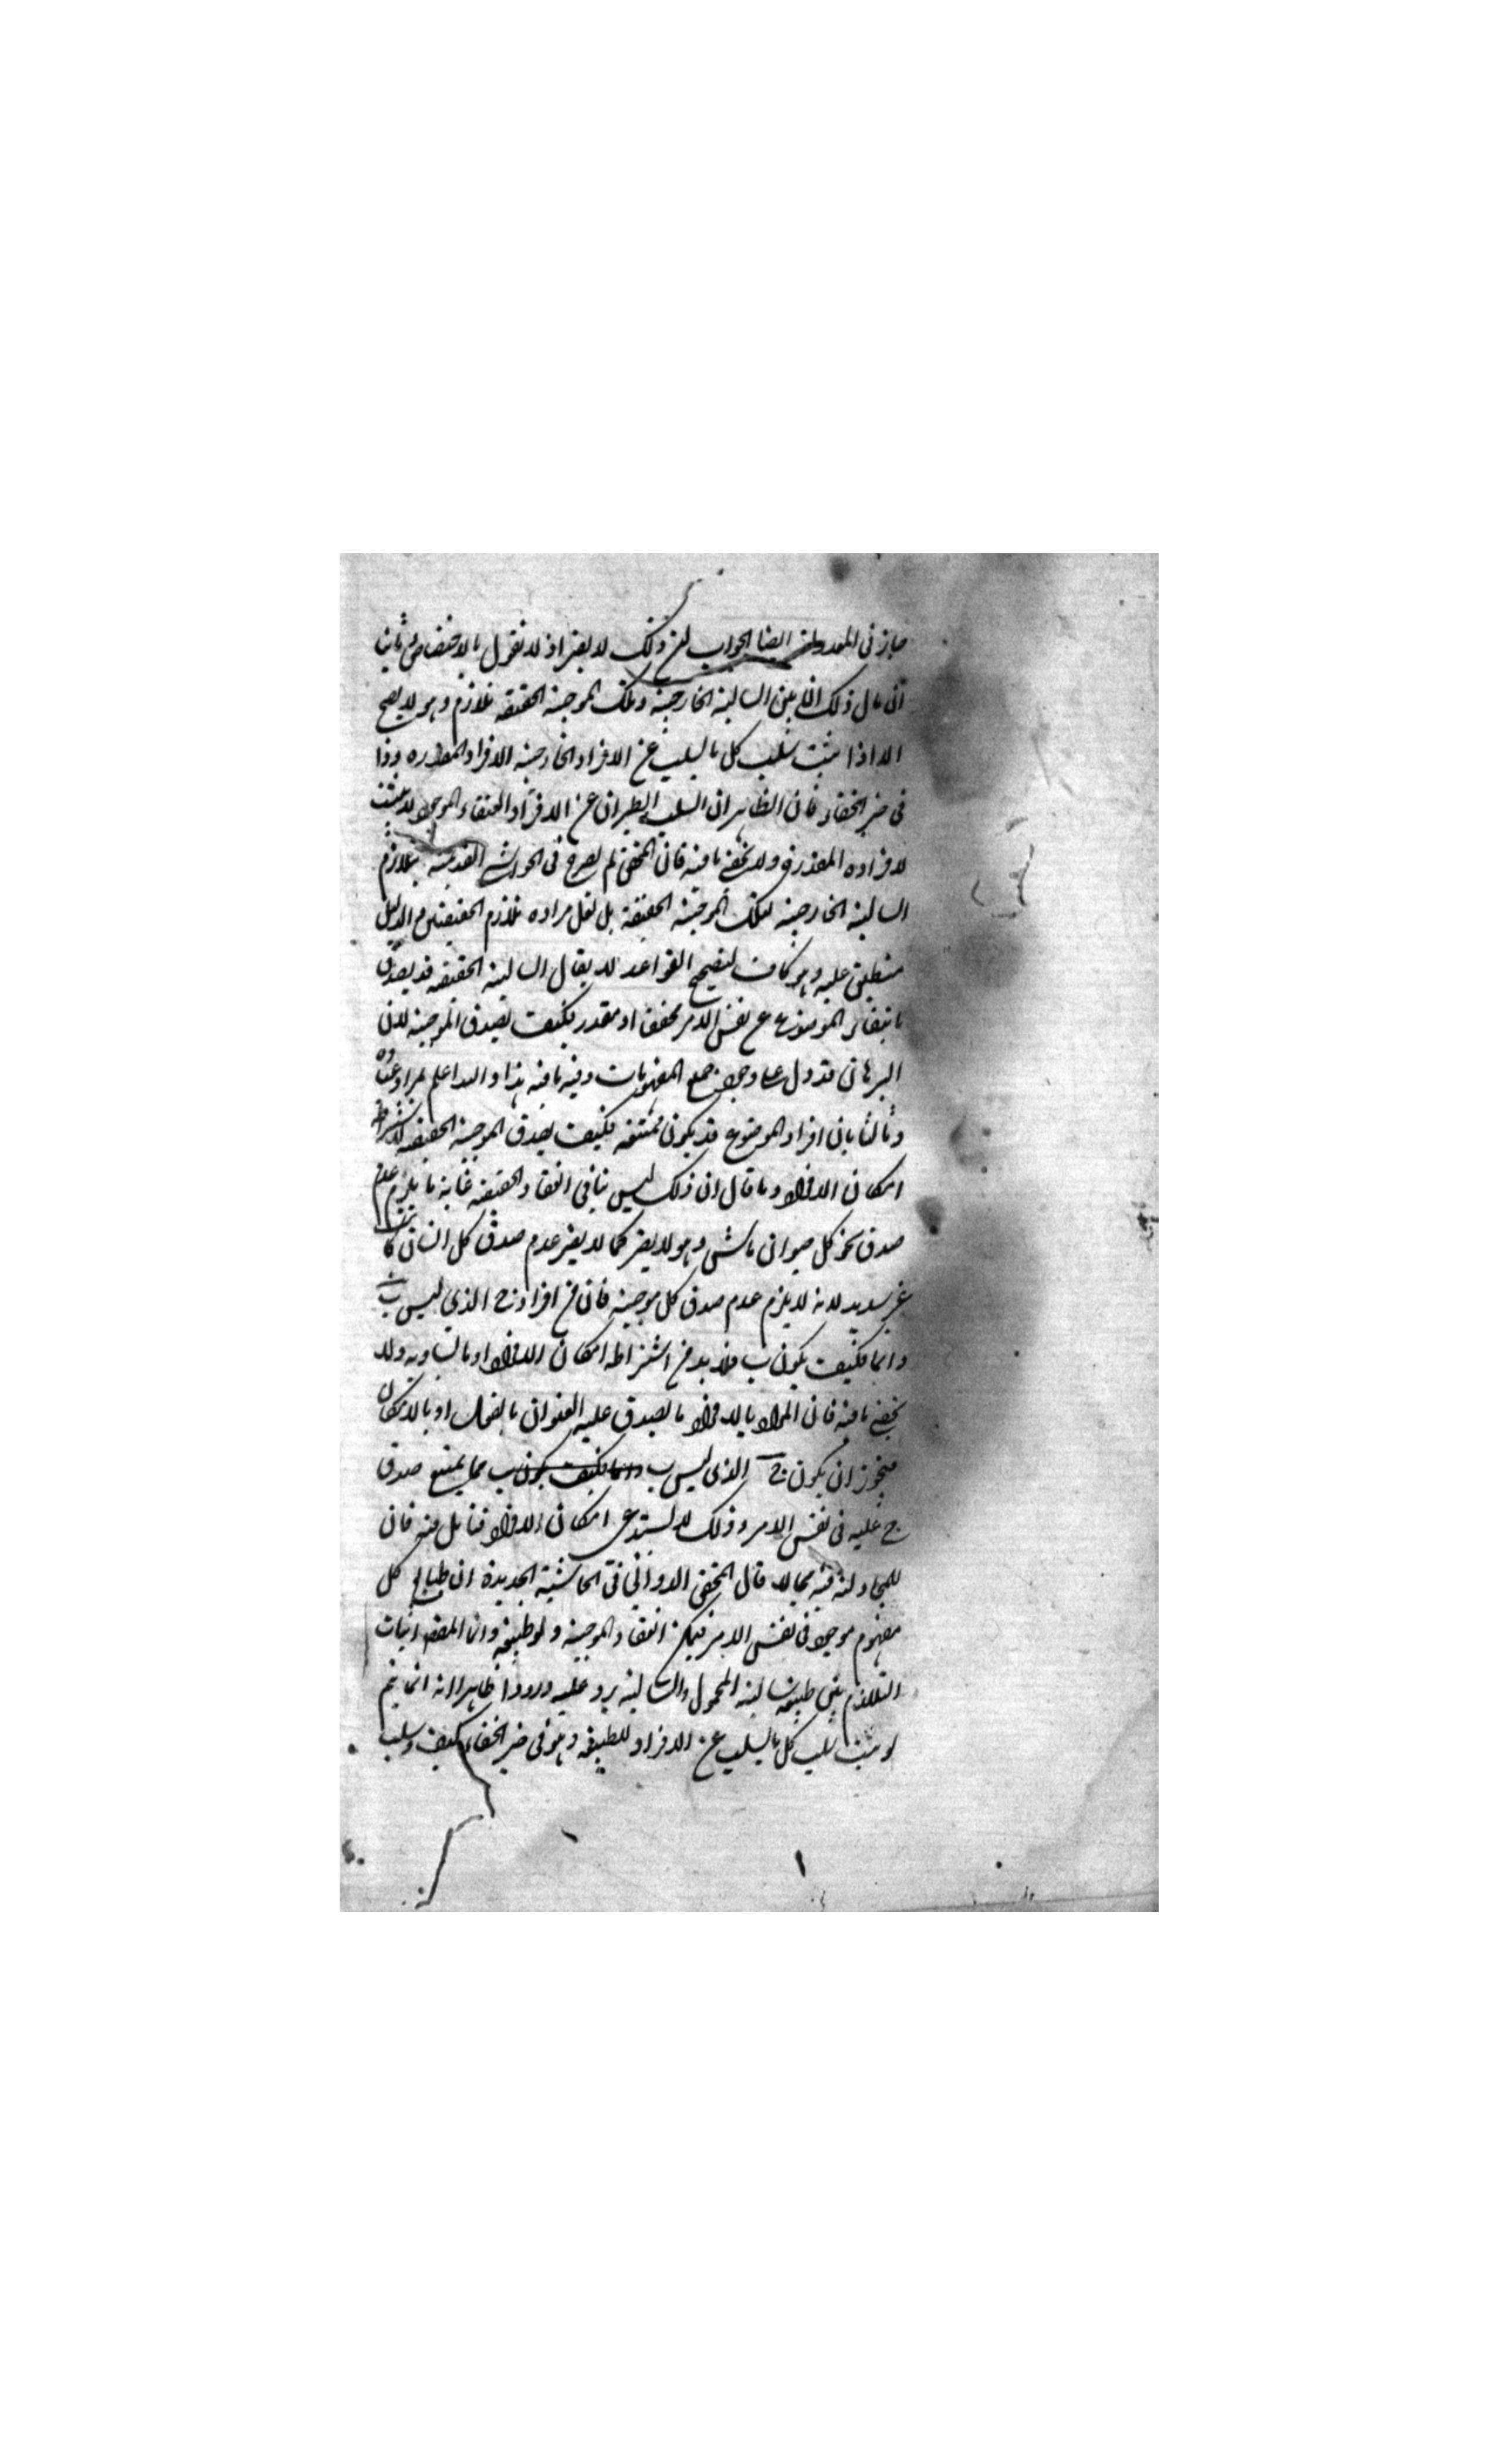 جاز في المعدولة ايضا الجواب ان ذلك لا يضر اذ لا نقول بالاختصاص ثانيا
ان مآل ذلك الى بين السالبة الخارجية وتلك الموجبة الحقيقة تلازم وهو لا يصح
الا اذا ثبت سلب كل ما يسلب عن الافراد الخارجية الافراد المقدرة وذا
في حيز الخفاء فان الظاهر ان السلب الطيران عن الافراد العنقاء الموجود لا يثبت
لافراده المقدرة ولا يخفى ما فيه فان المحقق لم يصرح في الحواشي القديمة بتلازم
السالبة الخارجية لتلك الموجبة الحقيقة بل لعل مراده تلازم الحقيقتين والدليل
منطبق عليه وهو كاف لتصحيح القواعد لا يقال السالبة الحقيقة قد يصدق
بانتفاء الموضوع عن نفس الامر محققا او مقدر فكيف يصدق الموجبة لان
البرهان قد دل على وجود جميع المفهومات وفيه ما فيه هذا والله اعلم بمراد عباده
وثالثا بان افراد الموضوع قد يكون ممتنعة فكيف يصدق الموجبة الحقيقة لاشتراط
امكان الافراد وما قال ان ذلك ليس ينافي انعقاد الحقيقة غاية ما يلزم عدم
صدق نحو كل حيوان ماشي وهو لا يضر كما لا يضر عدم صدق كل انسان كاتب
غير سديد لانه لا يلزم عدم صدق كل موجبة فان من افراد ج الذي ليس ب
دائما فكيف يكون ب فلا بد من اشتراط امكان الافراد او مالتساويه ولا
يخفى ما فيه فان المراد بالافراد ما يصدق عليه العنوان بالفعل او بالامكان
فيجوز ان يكون ج الذي ليس ب دائما فكيف يكون ب مما يمتنع صدق
ج عليه في نفس الامر وذلك لا يستدعي امكان الافراد فتامل فيه فان
للمجادلة فيه مجالا قال المحقق الدواني في الحاشية الجديدة ان طبايع كل
مفهوم موجود في نفس الامر فيمكن انعقاد الموجبة ولو طبيعة وان المقصود اثبات
التلازم بين طبيعة سالبة المحمول والسالبة يرد عليه ورودا ظاهرا انه انما يتم
لو ثبت سلب كل ما يسلب عن الافراد للطبيعة وهو في حيز الخفاء كيف وسلب